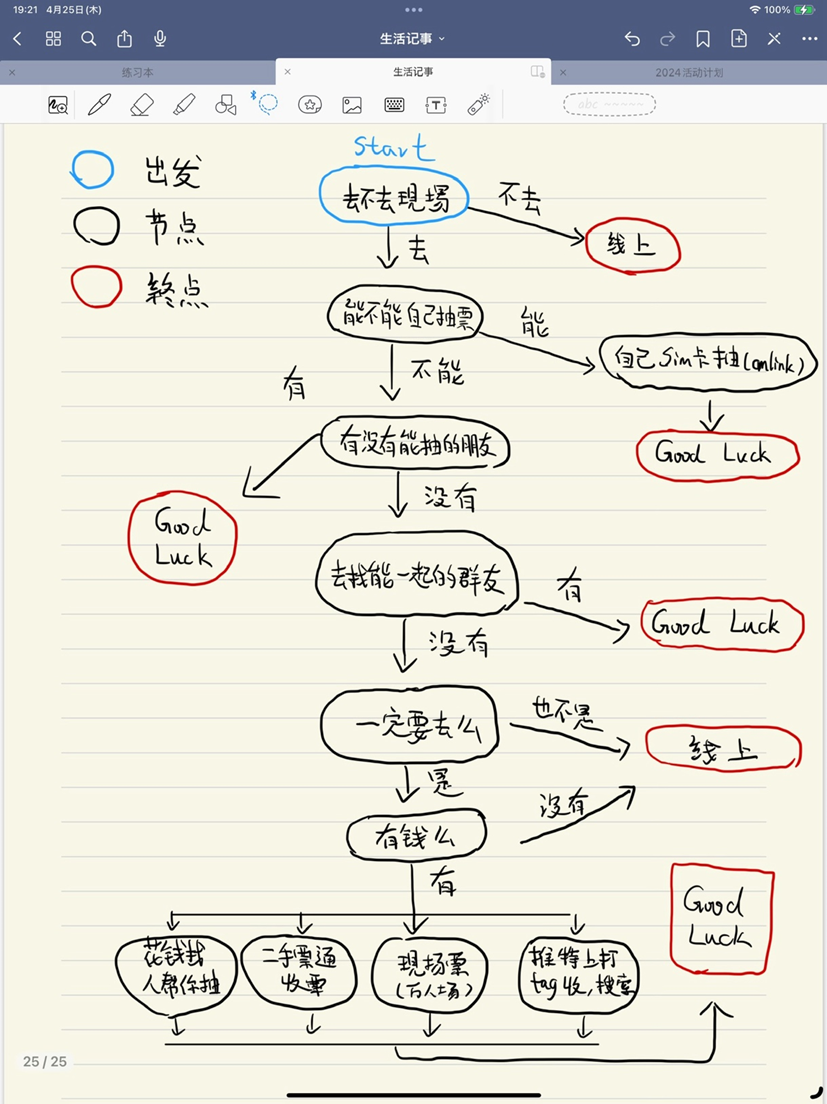 19:21 4月25日(木)
100%
生活记事
练习本
生活记事
2024活动计划
abc
start
出发
去不去现场
不去
节点
线上
去
終点
能不能自己抽票
能
自己Sim卡抽(anlink)
不能
有
有没有能抽的朋友
Good Luck
没有
Good
Luck
去找能一起的群友
有
Good Luck
没有
一定要去么
也不是
线上
是
没有
有钱么
有
Good
Luck
花钱找
人帮你抽
二手票通
收票
现场票
(万人场)
推特上打
tag收,搜索
25/25